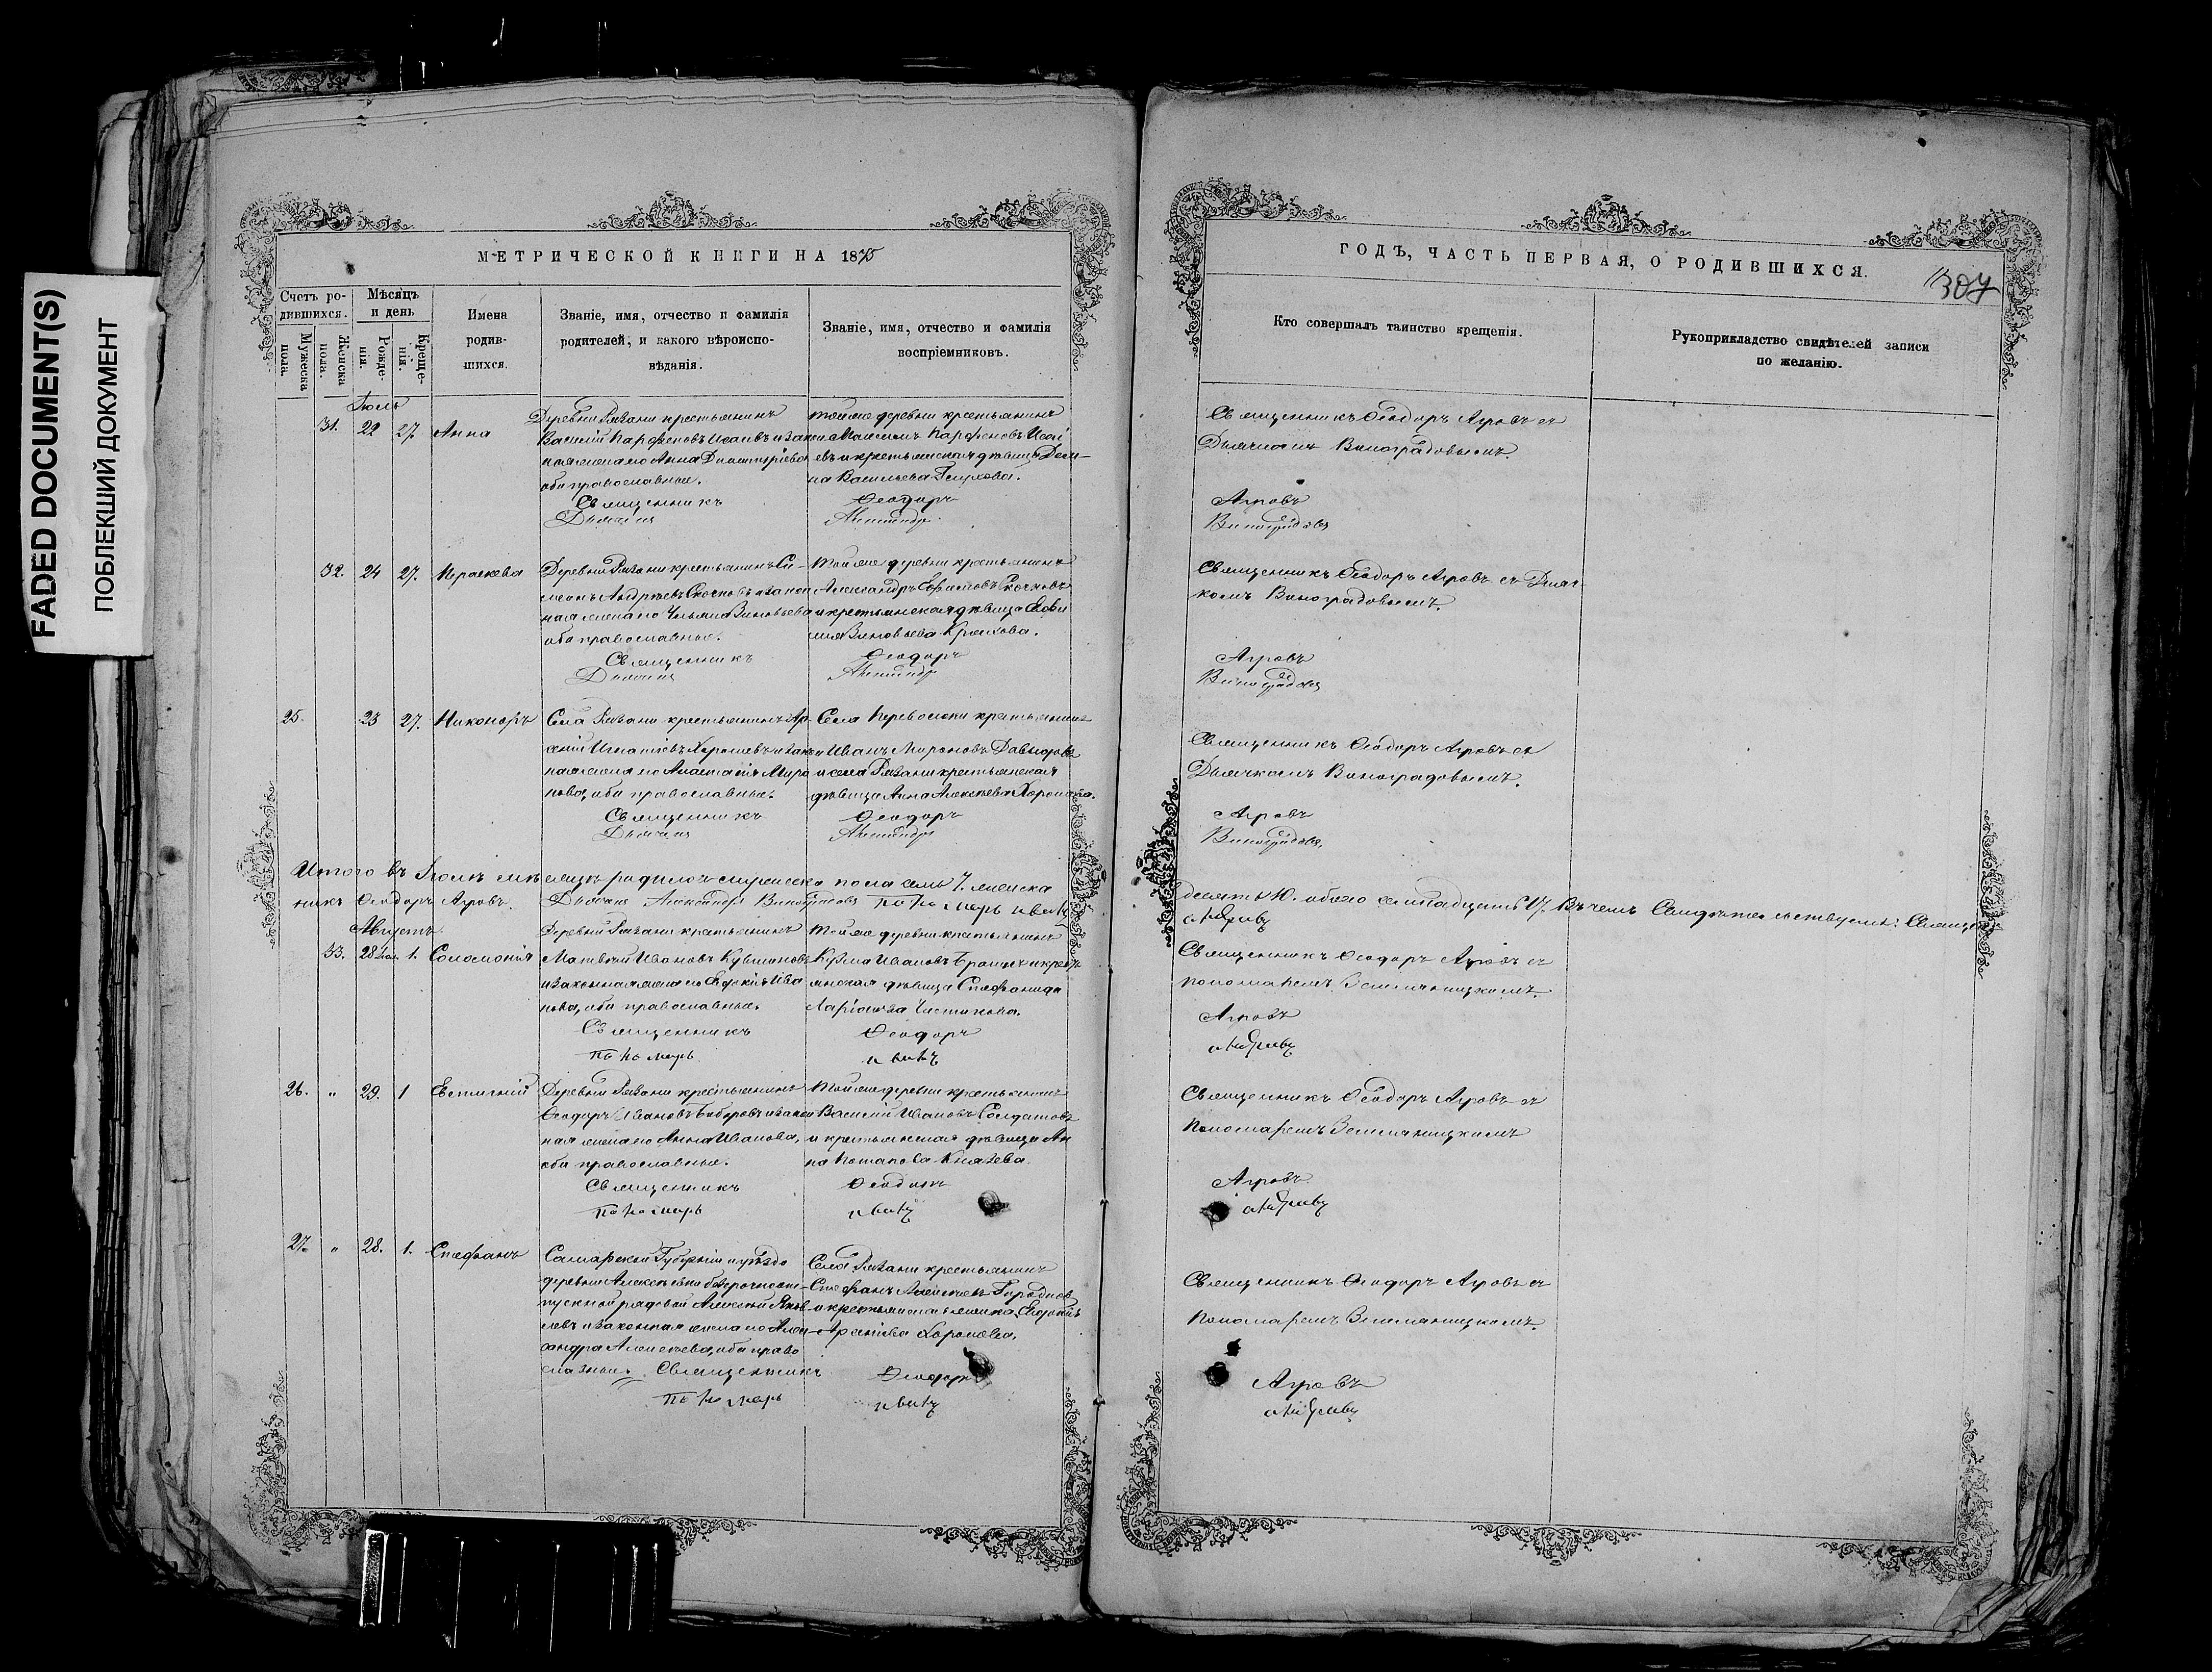 FADED DOCUMENT(S)
ПОБЛЕКШИЙ ДОКУМЕНТ
МЕТРИЧЕСКОЙ КНИГИ НА 1870
Счетъ ро-
дившихся.
Мужеска
пола.
Женска
пола.
Мѣсяцъ
и день
Рожде-
нія.
Креще-
нія.
Имена
родив-
шихся.
Званіе, имя, отчество и фамилія
родителей, и какого вѣроиспо-
вѣданія.
Званіе, имя, отчество и фамилія
воспріемниковъ.
Іюль
31. 22 27. Анна
Деревни Рязани крестьянинъ
Василій Парфеновъ Исаевъ и закон
ная жена его Анна Димитріева
оба православные.
Священникъ
Дьячекъ
тойже деревни крестьянинъ
Максимъ Парфеновъ Исаі
евъ и крестьянская дѣвица Дом-
на Васильева
Ѳеодоръ
Александръ
32. 24 27. Параскева
Деревни Рязани крестьянинъ Си-
меонъ Андреевъ и закон
ная жена его Ульяна Зиновьева
оба православные.
Священникъ
Дьячекъ
тойже деревни крестьянинъ
Александръ Ефимовъ
и крестьянская дѣвица
Зиновьева
Ѳеодоръ
Александръ
25. 23 27. Никаноръ
Села Рязани крестьянинъ Ар-
сеній Игнатіевъ Хорошевъ и закон
ная жена его Анастасія Миро
нова, оба православные.
Священникъ
Дьячекъ
Села Переволоки крестьянинъ
Иванъ Мироновъ Давыдовъ
и села Рязани крестьянская
дѣвица Анна Алексѣева Хорошева.
Ѳеодоръ
Александръ
Итого въ Іюлѣ мѣсяцѣ родилось мужеска пола семь 7. женска
никъ Ѳеодоръ Агровъ. Дьячекъ Александръ Виноградовъ Пономарь
Августъ.
33. 28 Іюл. 1. Соломонія
Деревни Рязани крестьянинъ
Матвѣй Ивановъ Кувшиновъ
и законная жена его Евдокія Ива
нова, оба православные.
Священникъ
Пономарь
Тойже деревни крестьянинъ
Кузма Ивановъ и кресть
янская дѣвица Стефанида
Ларіонова Чистикова.
Ѳеодоръ
26. " 29. 1 Евтихій
Деревни Рязани крестьянинъ
Ѳеодоръ Ивановъ Бобровъ и закон
ная жена его Анна Иванова,
оба православные.
Священникъ
Пономарь
Тойже деревни крестьянинъ
Василій Ивановъ Солдатовъ
и крестьянская дѣвица Ан
на Потапова Князева.
Ѳеодоръ
27. " 28. 1. Стефанъ
Самарской Губерніи и уѣзда
деревни Алексѣевки безсрочноот-
пускной рядовой Алексѣй Яков-
левъ и законная жена его Алек-
сандра Алексѣева, оба право
славные. Священникъ
Пономарь
Села Рязани крестьянинъ
Стефанъ Алексѣевъ
и крестьянская женка Евдокія
Арсентіева Хорошева.
Ѳеодоръ
ГОДЪ, ЧАСТЬ ПЕРВАЯ, О РОДИВШИХСЯ.
307
Кто совершалъ таинство крещенія.
Рукоприкладство свидѣтелей записи
по желанію.
Священникъ Ѳеодоръ Агровъ съ
Дьячкомъ Виноградовымъ.
Агровъ
Виноградовъ
Священникъ Ѳеодоръ Агровъ съ Дьяч-
комъ Виноградовымъ.
Агровъ
Виноградовъ
Священникъ Ѳеодоръ Агровъ съ
Дьячкомъ Виноградовымъ.
Агровъ
Виноградовъ.
десять 10. обоего семнадцать 17. Въ чемъ Свидѣтельствуемъ: Священ
Священникъ Ѳеодоръ Агровъ съ
пономаремъ Земляницкимъ.
Агровъ
Священникъ Ѳеодоръ Агровъ съ
Пономаремъ Земляницкимъ
Агровъ
Священникъ Ѳеодоръ Агровъ съ
Пономаремъ Земляницкимъ.
Агровъ